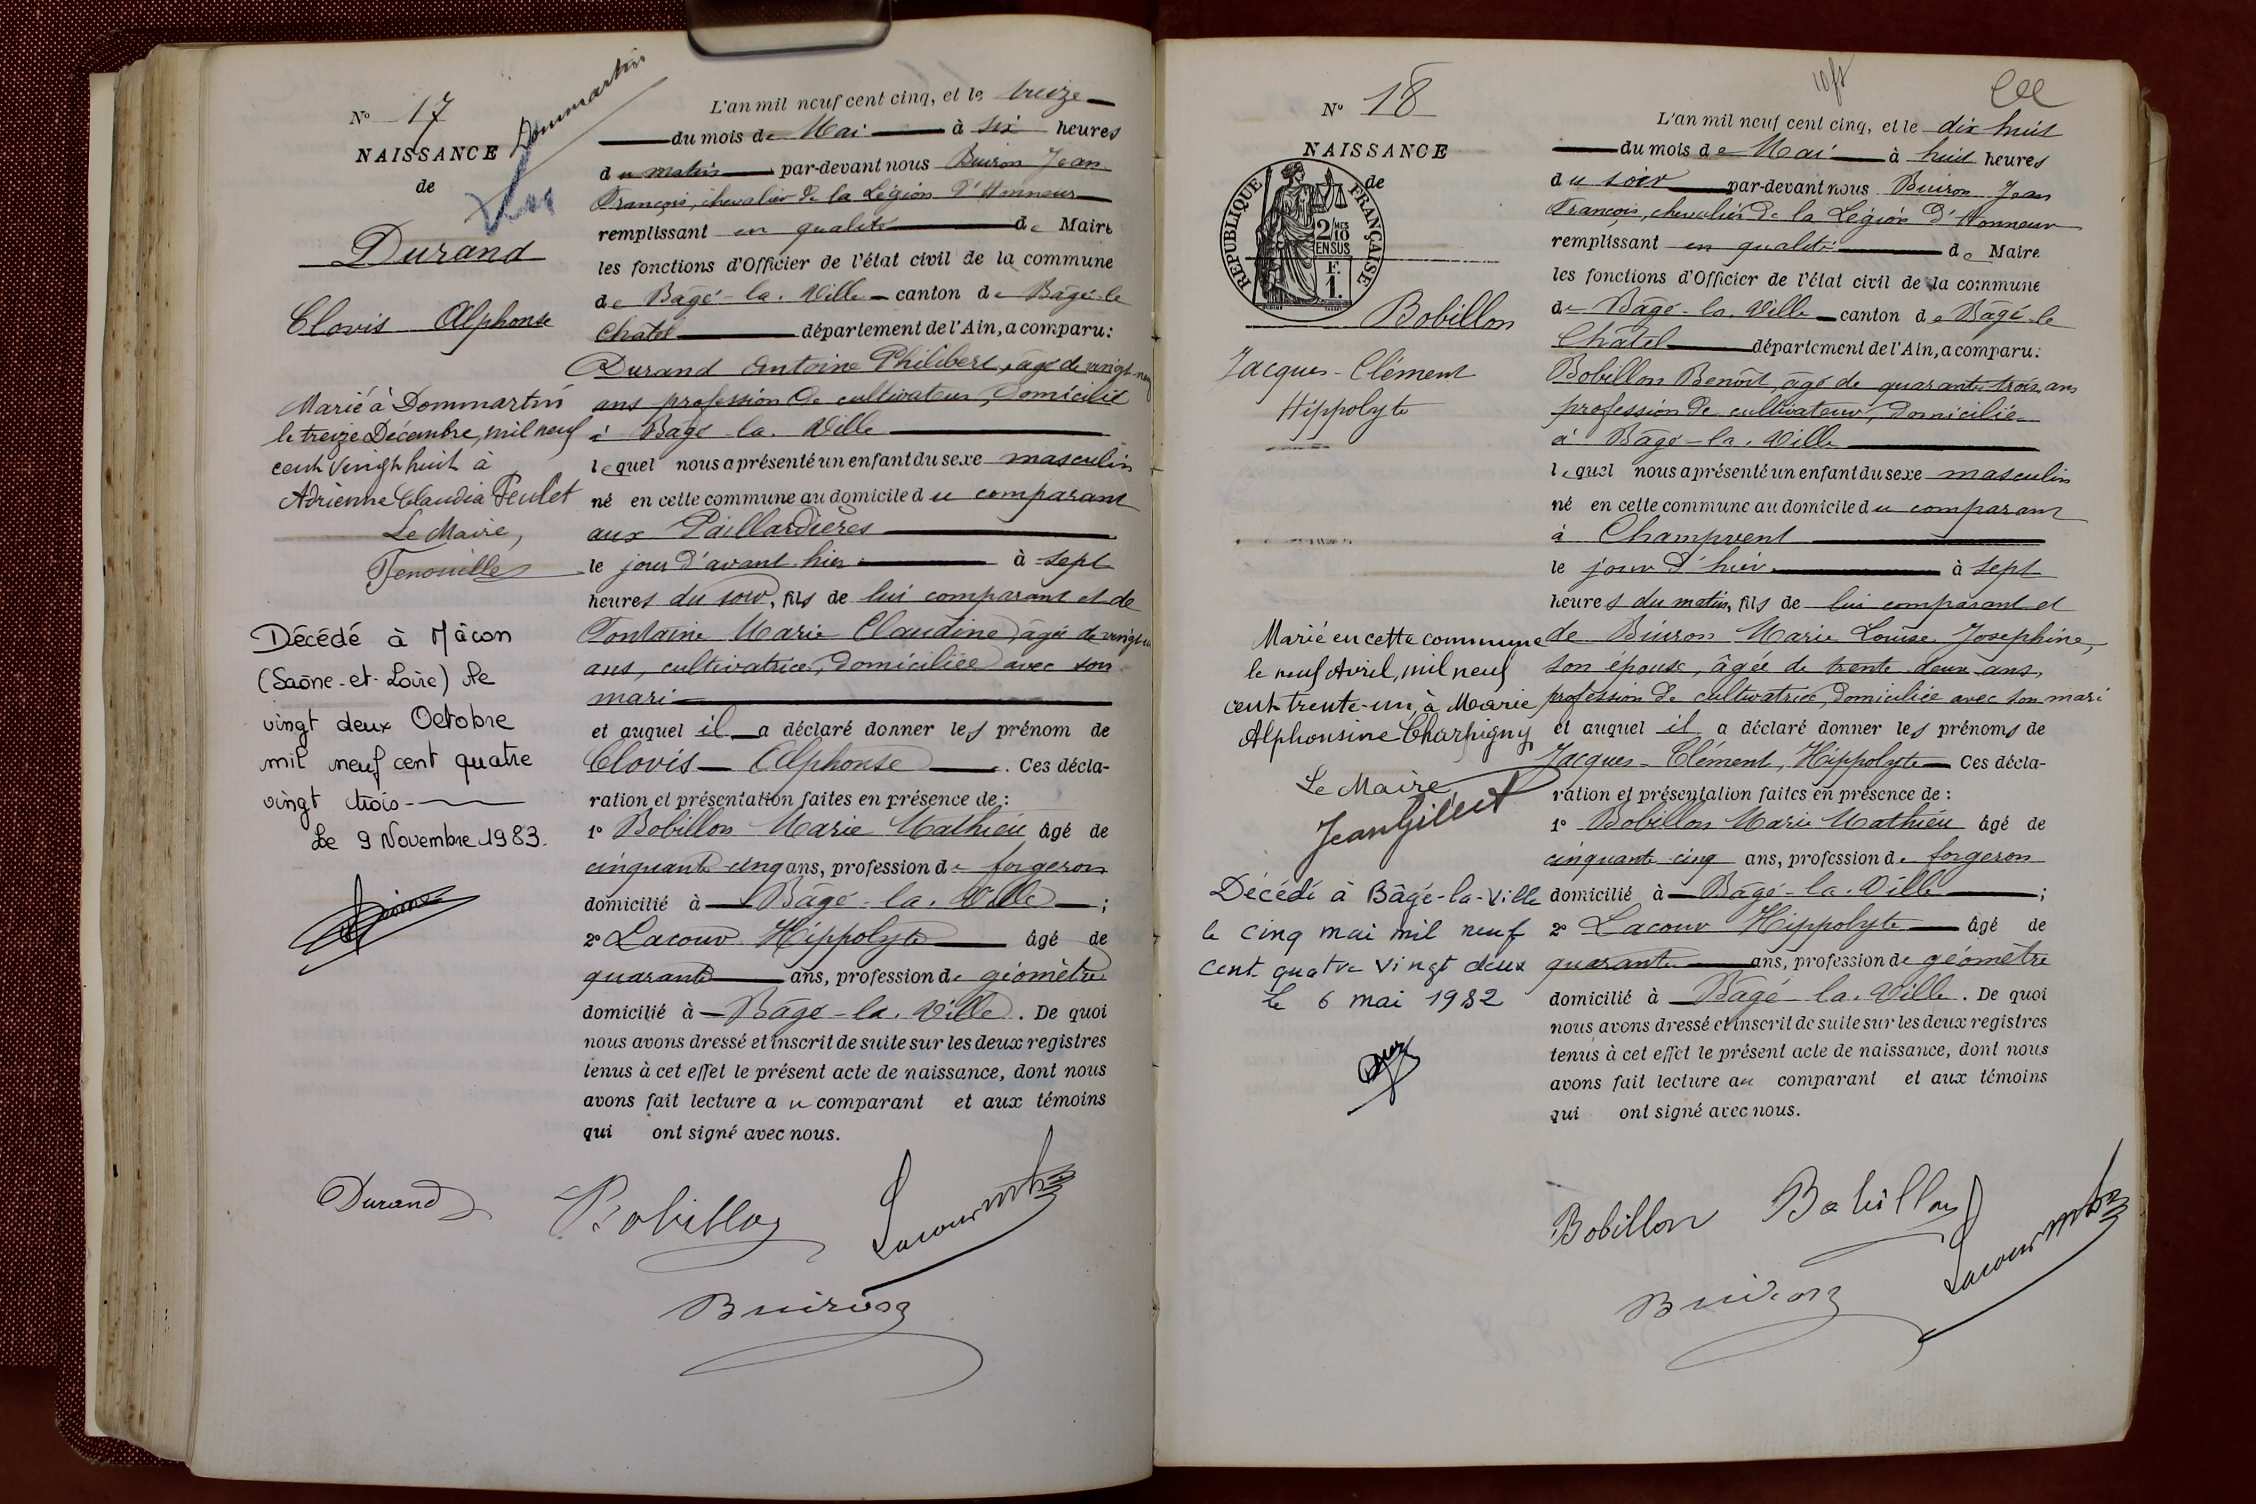 Nº 17
Dommartin
NAISSANCE
de
Durand
Clovis Alphonse
Marié à Dommartin
le treize Décembre, mil neuf
cent vingt huit à
Adrienne Claudia Feulet
Le Maire,
Fenouillet
Décédé à Mâcon
(Saône-et-Loire) le
vingt deux Octobre
mil neuf cent quatre
vingt trois
Le 9 Novembre 1983.
L'an mil neuf cent cinq, et le treize
du mois de Mai à six heures
du matin par-devant nous Buiron Jean
François, chevalier de la Légion d'Honneur
remplissant en qualité de Maire
les fonctions d'Officier de l'état civil de la commune
de Bâgé-la-Ville canton de Bâgé-le
Châtel département de l'Ain, a comparu:
Durand Antoine Philibert, âgé de vingt-neuf
ans profession de cultivateur, domicilié
à Bâgé-la-Ville
lequel nous a présenté un enfant du sexe masculin
né en cette commune au domicile du comparant
aux Paillardières
le jour d'avant hier à sept
heures du soir, fils de lui comparant et de
Fontaine Marie Claudine, âgée de
ans, cultivatrice, domiciliée avec son
mari
et auquel il a déclaré donner les prénom de
Clovis Alphonse. Ces décla-
ration et présentation faites en présence de:
1º Bobillon Marie Mathieu âgé de
cinquante-cinq ans, profession de forgeron
domicilié à Bâgé-la-Ville;
2º Lacour Hippolyte âgé de
quarante ans, profession de géomètre
domicilié à Bâgé-la-Ville. De quoi
nous avons dressé et inscrit de suite sur les deux registres
tenus à cet effet le présent acte de naissance, dont nous
avons fait lecture au comparant et aux témoins
qui ont signé avec nous.
Durand Bobillon Lacour
Buiron
Nº 18
NAISSANCE
de
REPUBLIQUE FRANÇAISE
2/10 EN SUS
F. 1.
Bobillon
Jacques-Clément
Hippolyte
Marié en cette commune
le neuf Avril, mil neuf
cent trente-un, à Marie
Alphonsine Charpigny
Le Maire,
Jean Gillet
Décédé à Bâgé-la-Ville
le cinq mai mil neuf
cent quatre vingt deux
le 6 mai 1982
L'an mil neuf cent cinq, et le dix huit
du mois de Mai à huit heures
du soir par-devant nous Buiron Jean
François, chevalier de la Légion d'Honneur
remplissant en qualité de Maire
les fonctions d'Officier de l'état civil de la commune
de Bâgé-la-Ville canton de Bâgé-le
Châtel département de l'Ain, a comparu:
Bobillon Benoît, âgé de quarante-trois ans
profession de cultivateur, domicilié
à Bâgé-la-Ville
lequel nous a présenté un enfant du sexe masculin
né en cette commune au domicile du comparant
à Champvent
le jour d'hier à sept
heures du matin, fils de lui comparant et
de Buiron Marie Louise Josephine,
son épouse, âgée de trente deux ans,
profession de cultivatrice, domiciliée avec son mari
et auquel il a déclaré donner les prénoms de
Jacques-Clément, Hippolyte Ces décla-
ration et présentation faites en présence de:
1º Bobillon Marie Mathieu âgé de
cinquante cinq ans, profession de forgeron
domicilié à Bâgé-la-Ville;
2º Lacour Hippolyte âgé de
quarante ans, profession de géomètre
domicilié à Bâgé-la-Ville. De quoi
nous avons dressé et inscrit de suite sur les deux registres
tenus à cet effet le présent acte de naissance, dont nous
avons fait lecture au comparant et aux témoins
qui ont signé avec nous.
Bobillon Bobillon Lacour
Buiron